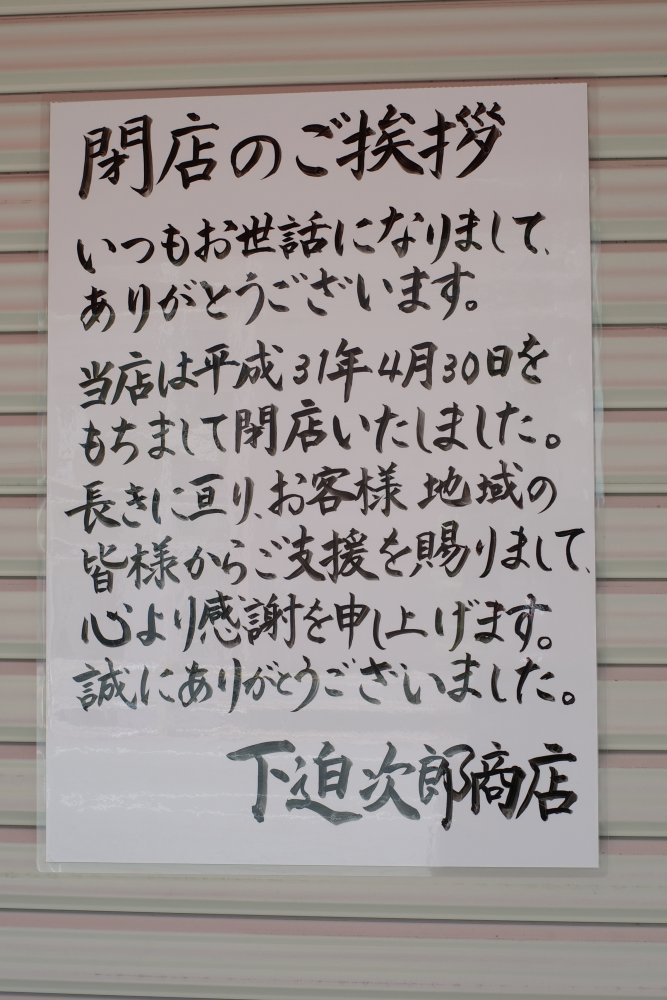 閉店のご挨拶
いつもお世話になりまして、
ありがとうございます。
当店は平成31年4月30日を
もちまして閉店いたしました。
長きに亘り、お客様 地域の
皆様からご支援を賜りまして、
心より感謝を申し上げます。
誠にありがとうございました。
下迫次郎商店